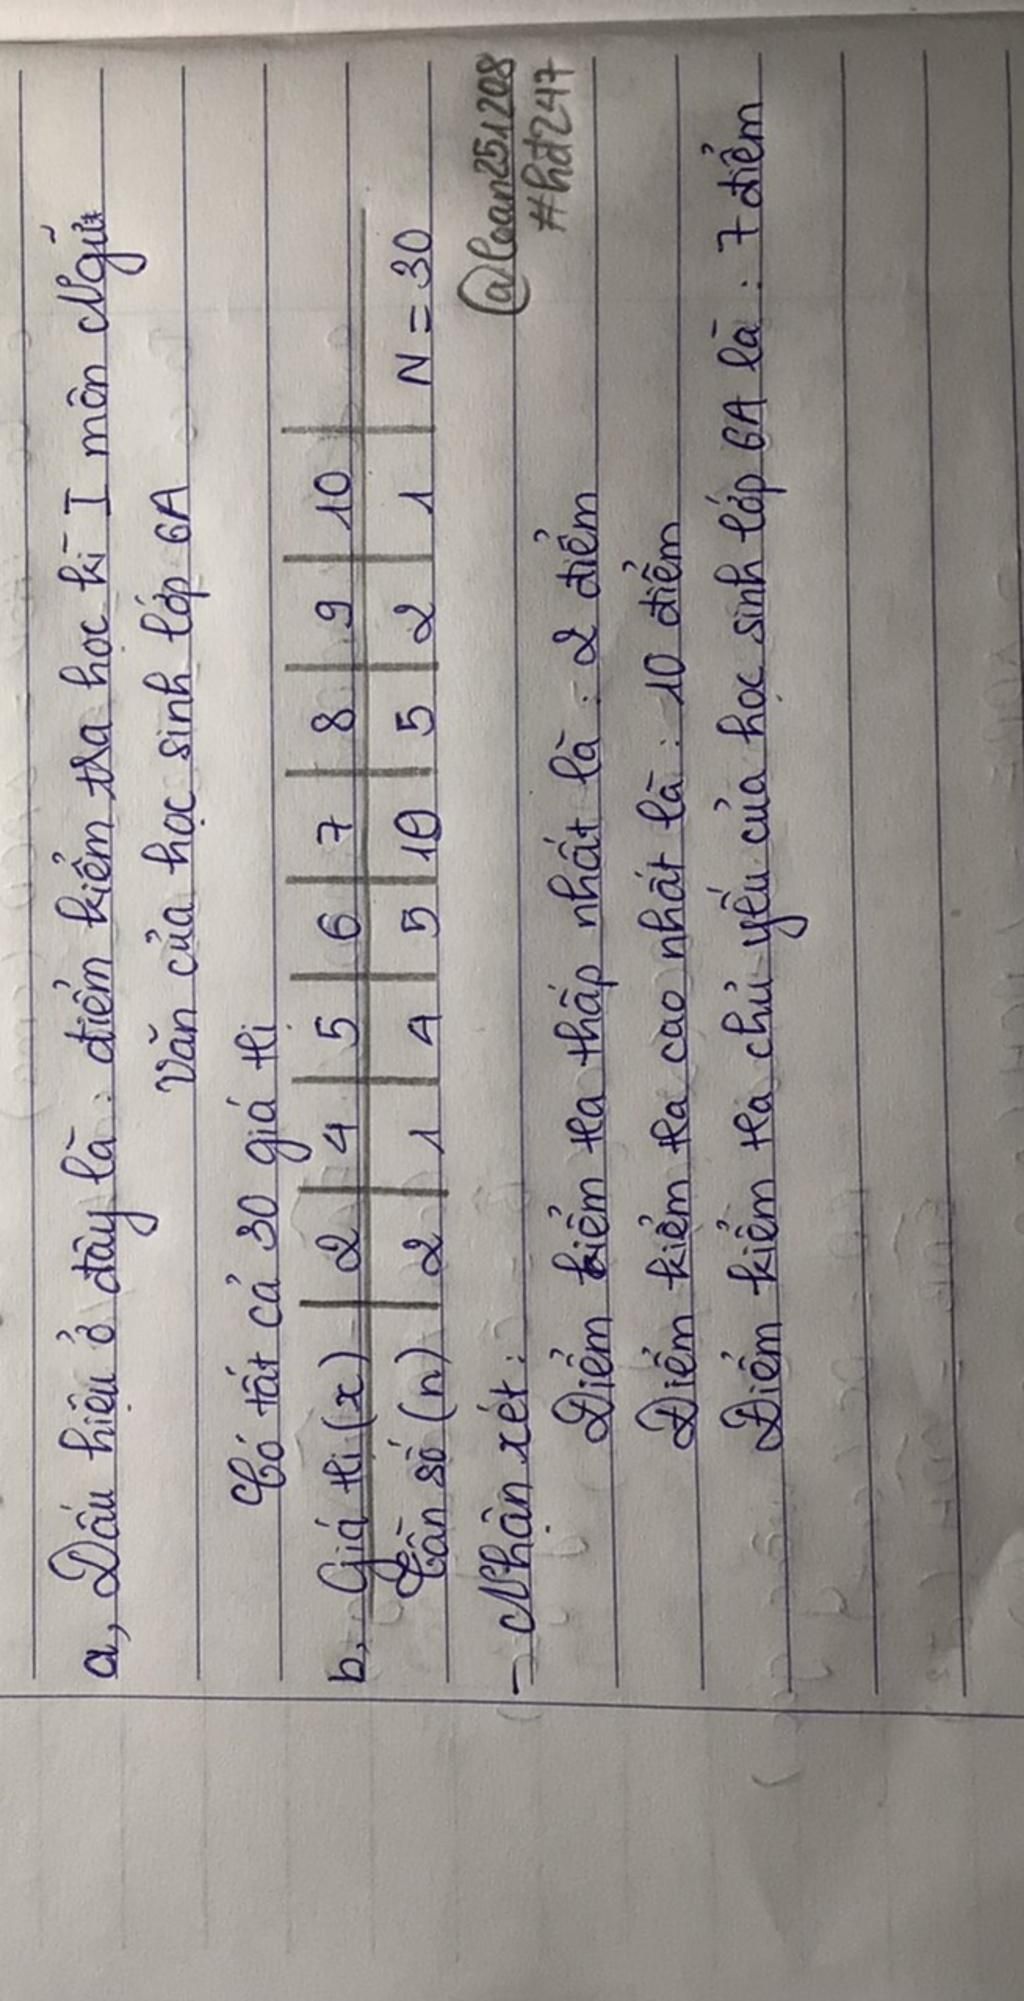 a, Dấu hiệu ở đây là: điểm kiểm tra học kì I môn Ngữ
Văn của học sinh lớp 6A
Có tất cả 30 giá trị
b, Giá trị (x) | 2 | 4 | 5 | 6 | 7 | 8 | 9 | 10 |
Tần số (n) | 2 | 1 | 4 | 5 | 10 | 5 | 2 | 1 | N = 30
- Nhận xét:
@loan251208
#hd247
Điểm kiểm tra thấp nhất là: 2 điểm
Điểm kiểm tra cao nhất là: 10 điểm
Điểm kiểm tra chủ yếu của học sinh lớp 6A là: 7 điểm